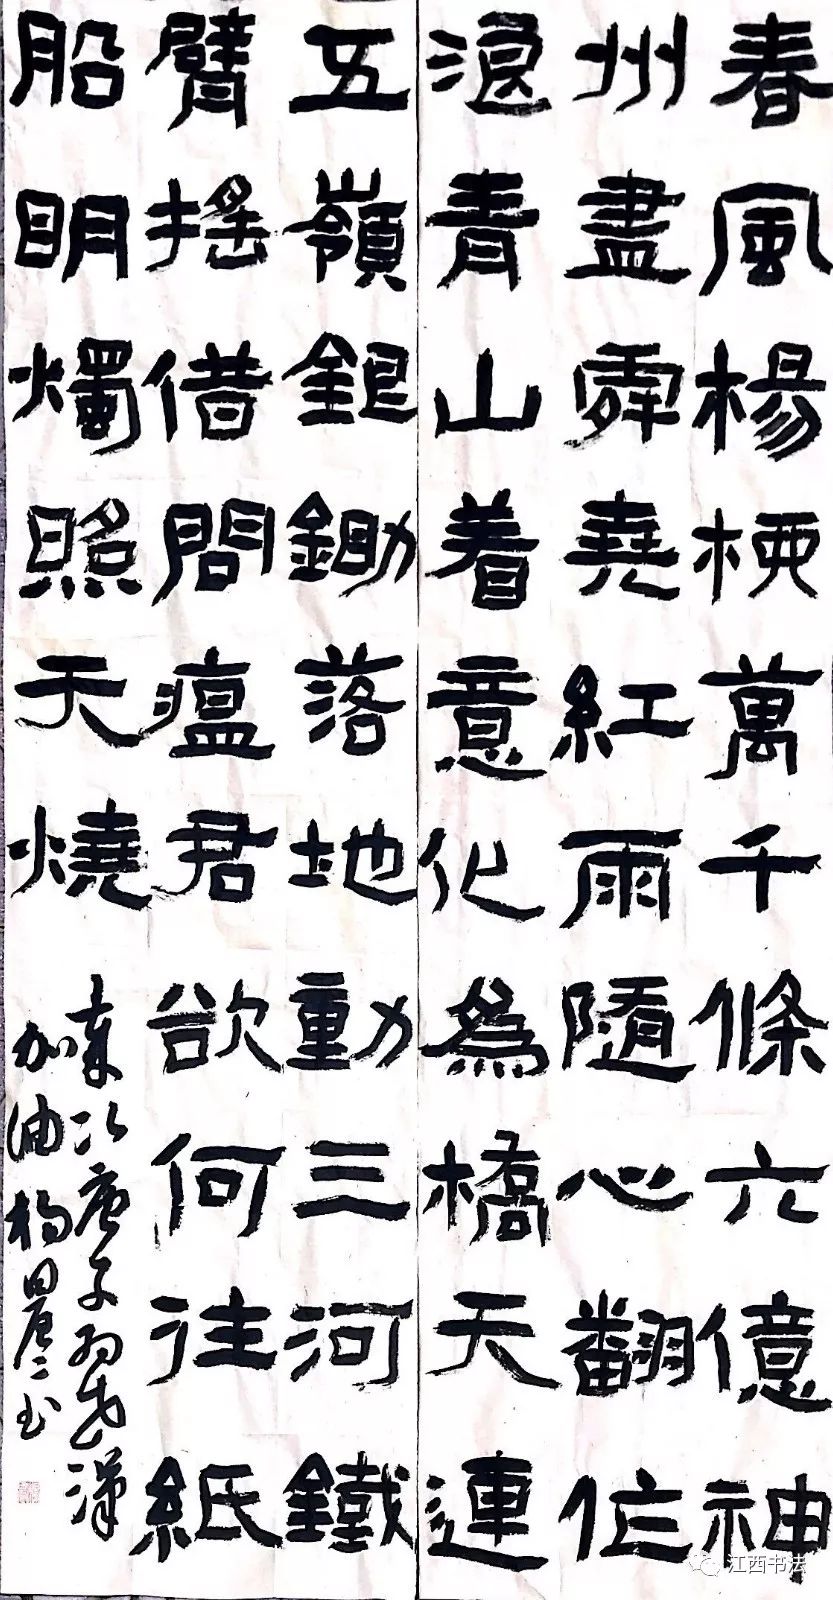 春風楊柳萬千條六億神
州盡舜堯紅雨隨心翻作
浪青山着意化為橋天連
五嶺銀鋤落地動三河鐵
臂搖借問瘟君欲何往紙
船明燭照天燒
歲次庚子为武漢
加油楊书
江西书法